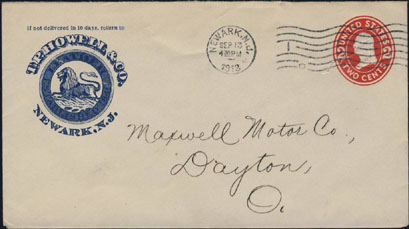 If not delivered in 10 days, return to
T.P. HOWELL & CO.
NEWARK, N.J.
NEWARK, N.J.
SEP 13
4 30 PM
1913
UNITED STATES
2 2
TWO CENTS
Maxwell Motor Co.,
Dayton,
O.